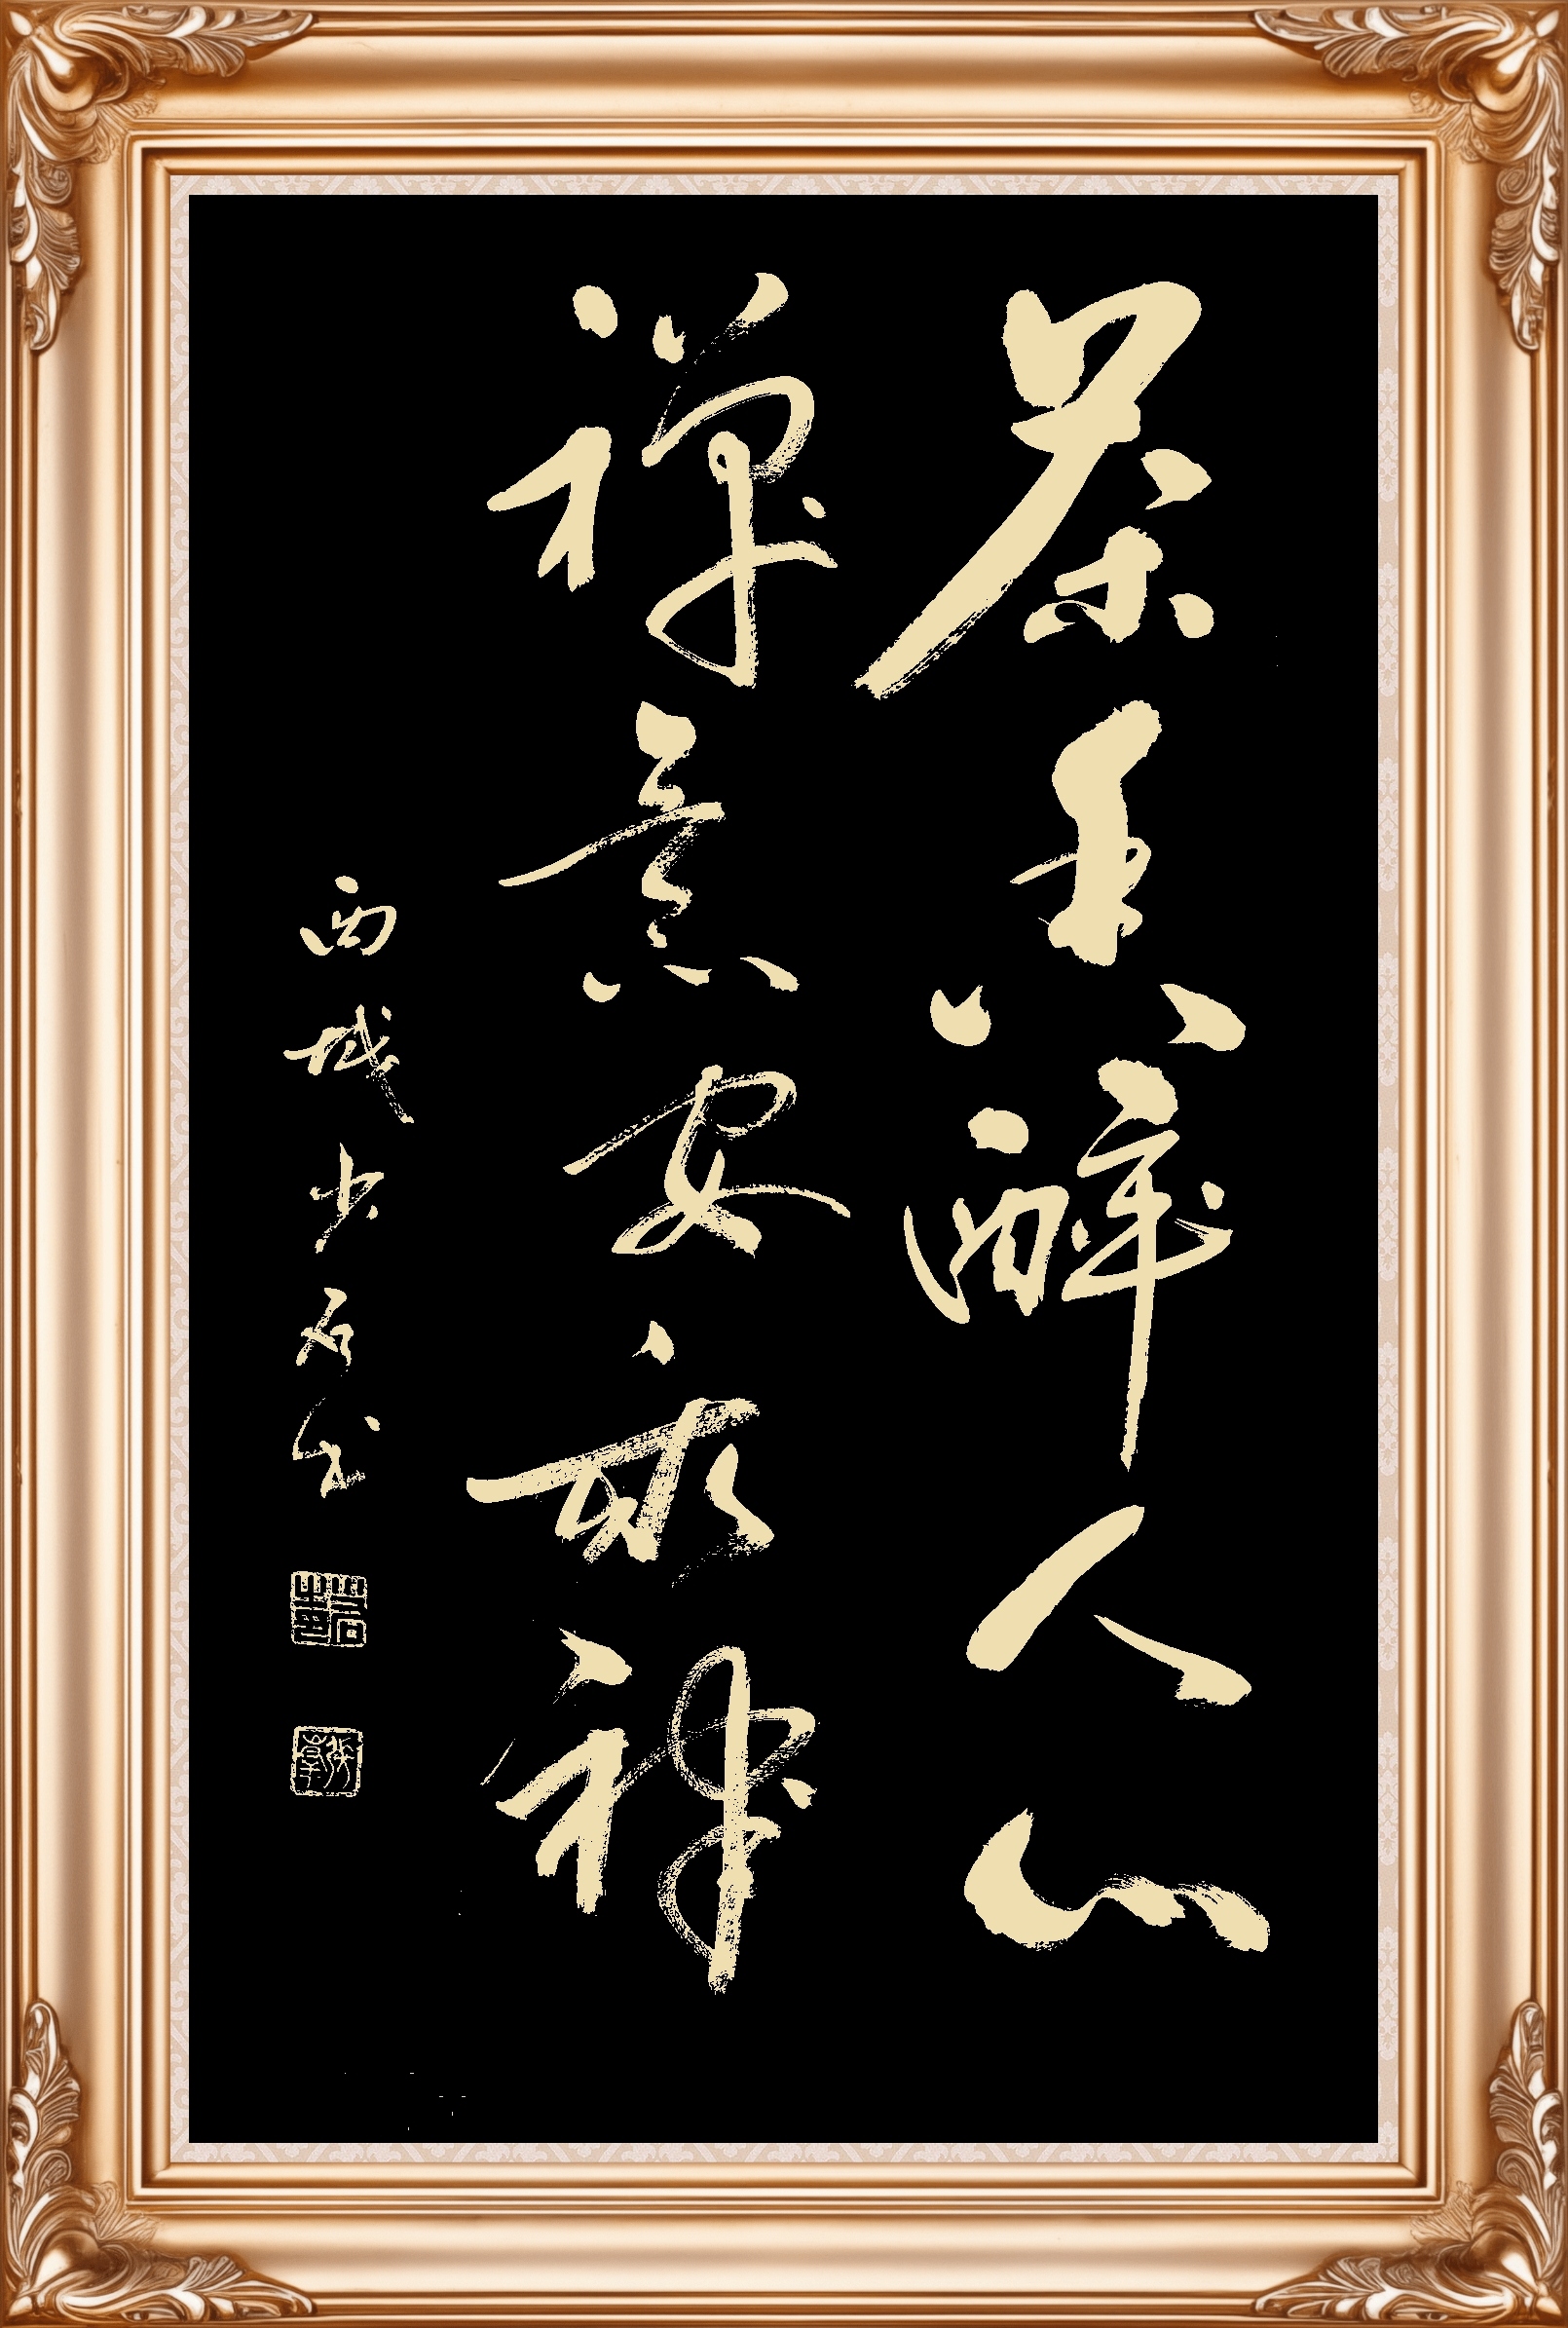 茶香醉人心
禪意安我神
西域少石书